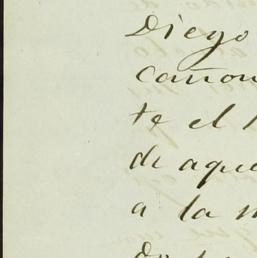 Diego
cañon
te el
de aque
a la